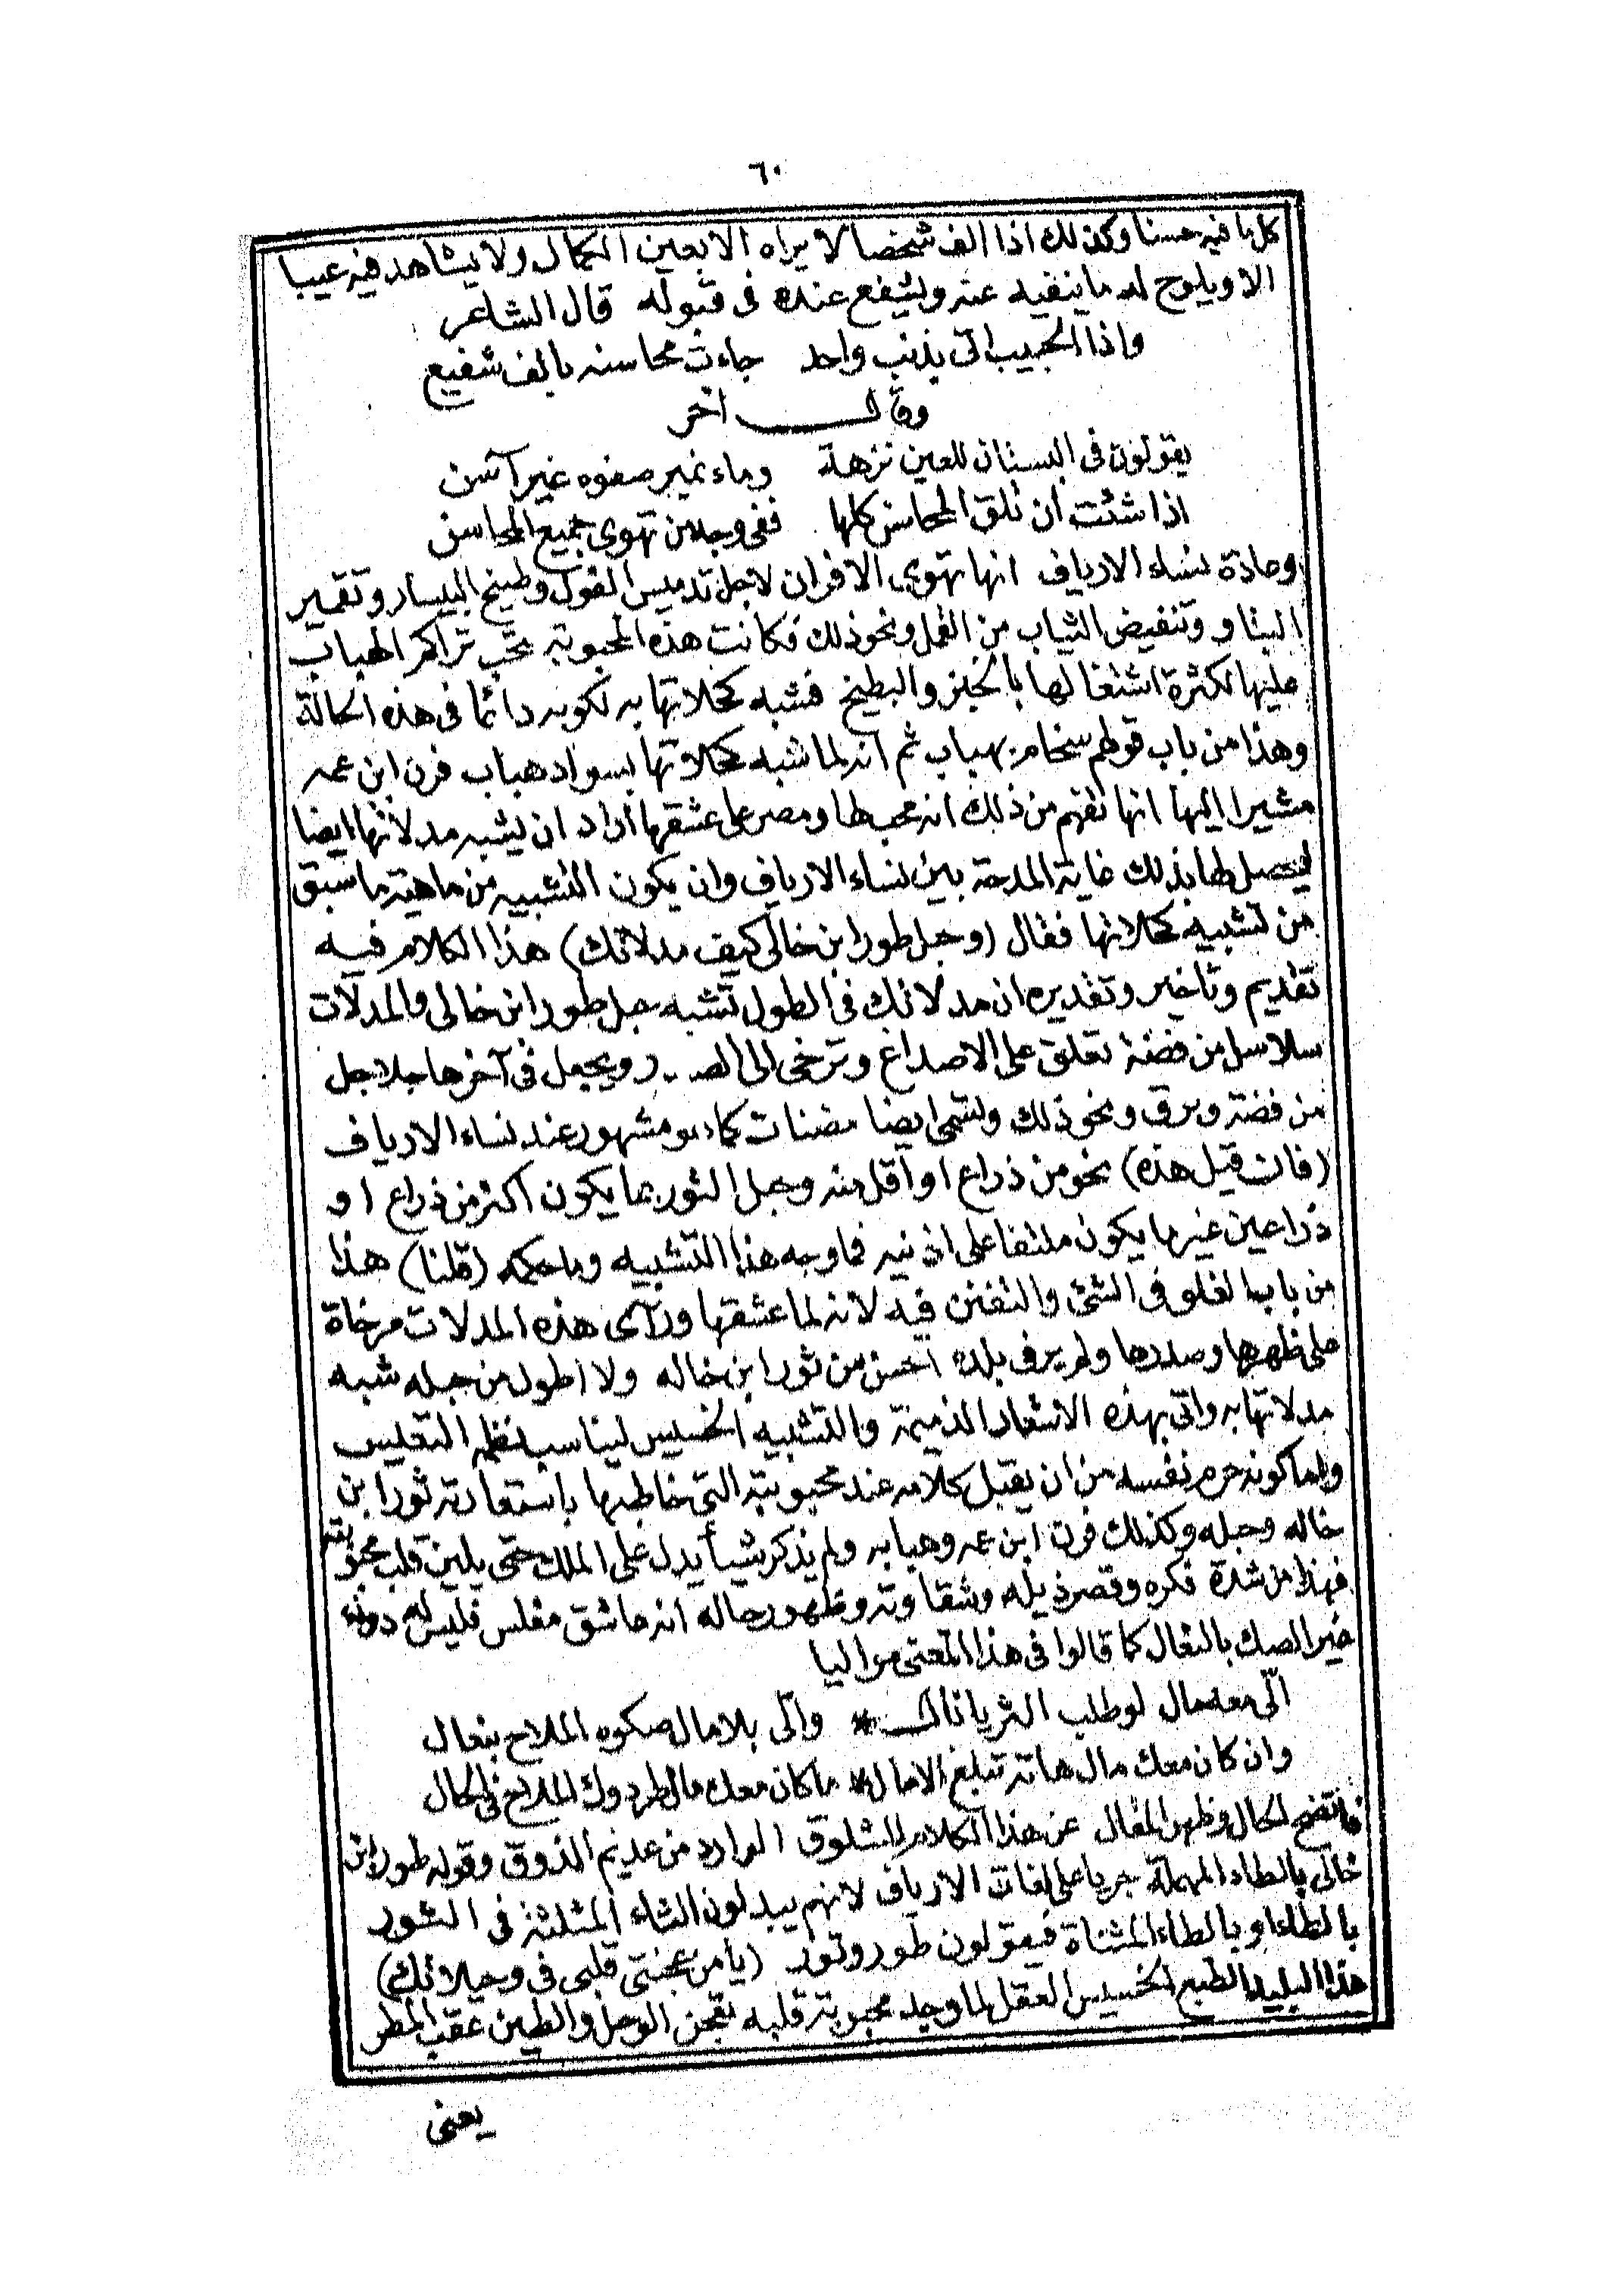 ٦٠
كل ما فيه حسنا وكذلك اذا الف شخصا لا يراه الا بعين الكمال ولا يشاهد فيه عيبا
الا ويلوح له ما ينفيه عنه ويشفع عنده فى قبوله قال الشاعر
واذا الحبيب اتى بذنب واحد جاءت محاسنه بالف شفيع
وقال آخر
يقولون فى البستان للعين نزهة وماء نمير صفوه غير آسن
اذا شئت ان تلق المحاسن كلها ففى وجه من تهوى جميع المحاسن
وعادة نساء الارياف انها تهوى الافران لاجل تدميس الفول وطبيخ البيسار وتقمير
البتاو وتنفيض الثياب من القمل ونحو ذلك فكانت هذه المحبوبة تحب تراكم الهباب
عليها لكثرة اشتغالها بالخبز والبطيخ فشبه كحلاتها به لكونه دائما فى هذه الحالة
وهذا من باب قولهم سخام بهباب ثم انه لما شبه كحلاتها بسواد هباب فرن ابن عمه
مشيرا اليها انها تفهم من ذلك انه محب لها ومصر على عشقها أراد ان يشبه مدلاتها ايضا
ليحصل لها بذلك غاية المدحة بين نساء الارياف وان يكون التشبيه من ماهية ما سبق
من تشبيه كحلاتها فقال (وحبل طور ابن خالى كيف مدلاتك) هذا الكلام فيه
تقديم وتأخير وتقديره ان مدلاتك فى الطول تشبه حبل طور ابن خالى والمدلات
سلاسل من فضة تعلق على الاصداغ وترخى الى الصدر ويجعل فى آخرها جلاجل
من فضة وبرق ونحو ذلك وتسمى ايضا مضنات كما هو مشهور عند نساء الارياف
(فان قيل هذه) نحو من ذراع او أقل منه وحبل الثور بما يكون اكثر من ذراع او
ذراعين غير ما يكون ملتفا على اذنيه فما وجه هذا التشبيه وما حكمه (قلنا) هذا
من باب الغلو فى الشئ والتفنن فيه لانه لما عشقها ورآى هذه المدلات مرخاة
على ظهرها وصدرها ولم ير فى بلده احسن من ثور ابن خاله ولا اطول من حبله شبه
مدلاتها به واتى بهذه الاشعار الذميمة والتشبيه الخسيس ليناسب نظمه التعيس
واما كونه حرم نفسه من ان يقبل كلامه عند محبوبته التى خاطبها باستعارته ثور ابن
خاله وحبله وكذلك فرن ابن عمه وهبابه ولم يذكر شيأ يدل على الملك حتى يلين قلب محبوبته
فهذا من شدة فكره وقصر ذيله وشقاوته وظهور حاله انه عاشق مفلس فليس له دواء
غير الصك بالنعال كما قالوا فى هذا المعنى مواليا
الّى معه مال لو طلب الثريا نال * والّى بلا مال صكوه الملاح بنعال
وان كان معك مال هاته تبلغ الامال * ما كان معك مال طردوك الملاح فى الحال
فاتضح الحال وظهر المقال عن هذا الكلام المشلوق الوارد من عديم الذوق وقوله طور ابن
خالى بالطاء المهملة جريا على لغات الارياف لانهم يبدلون الثاء المثلثة فى الثور
بالطاء او بالطاء المثناة فيقولون طور وتور (يا من عجنتى قلبى فى وحيلاتك)
هذا البليد الطبع الخسيس العقل لما وجد محبوبته قلبه تعجن الوحل والطين عقب المطر
يعنى